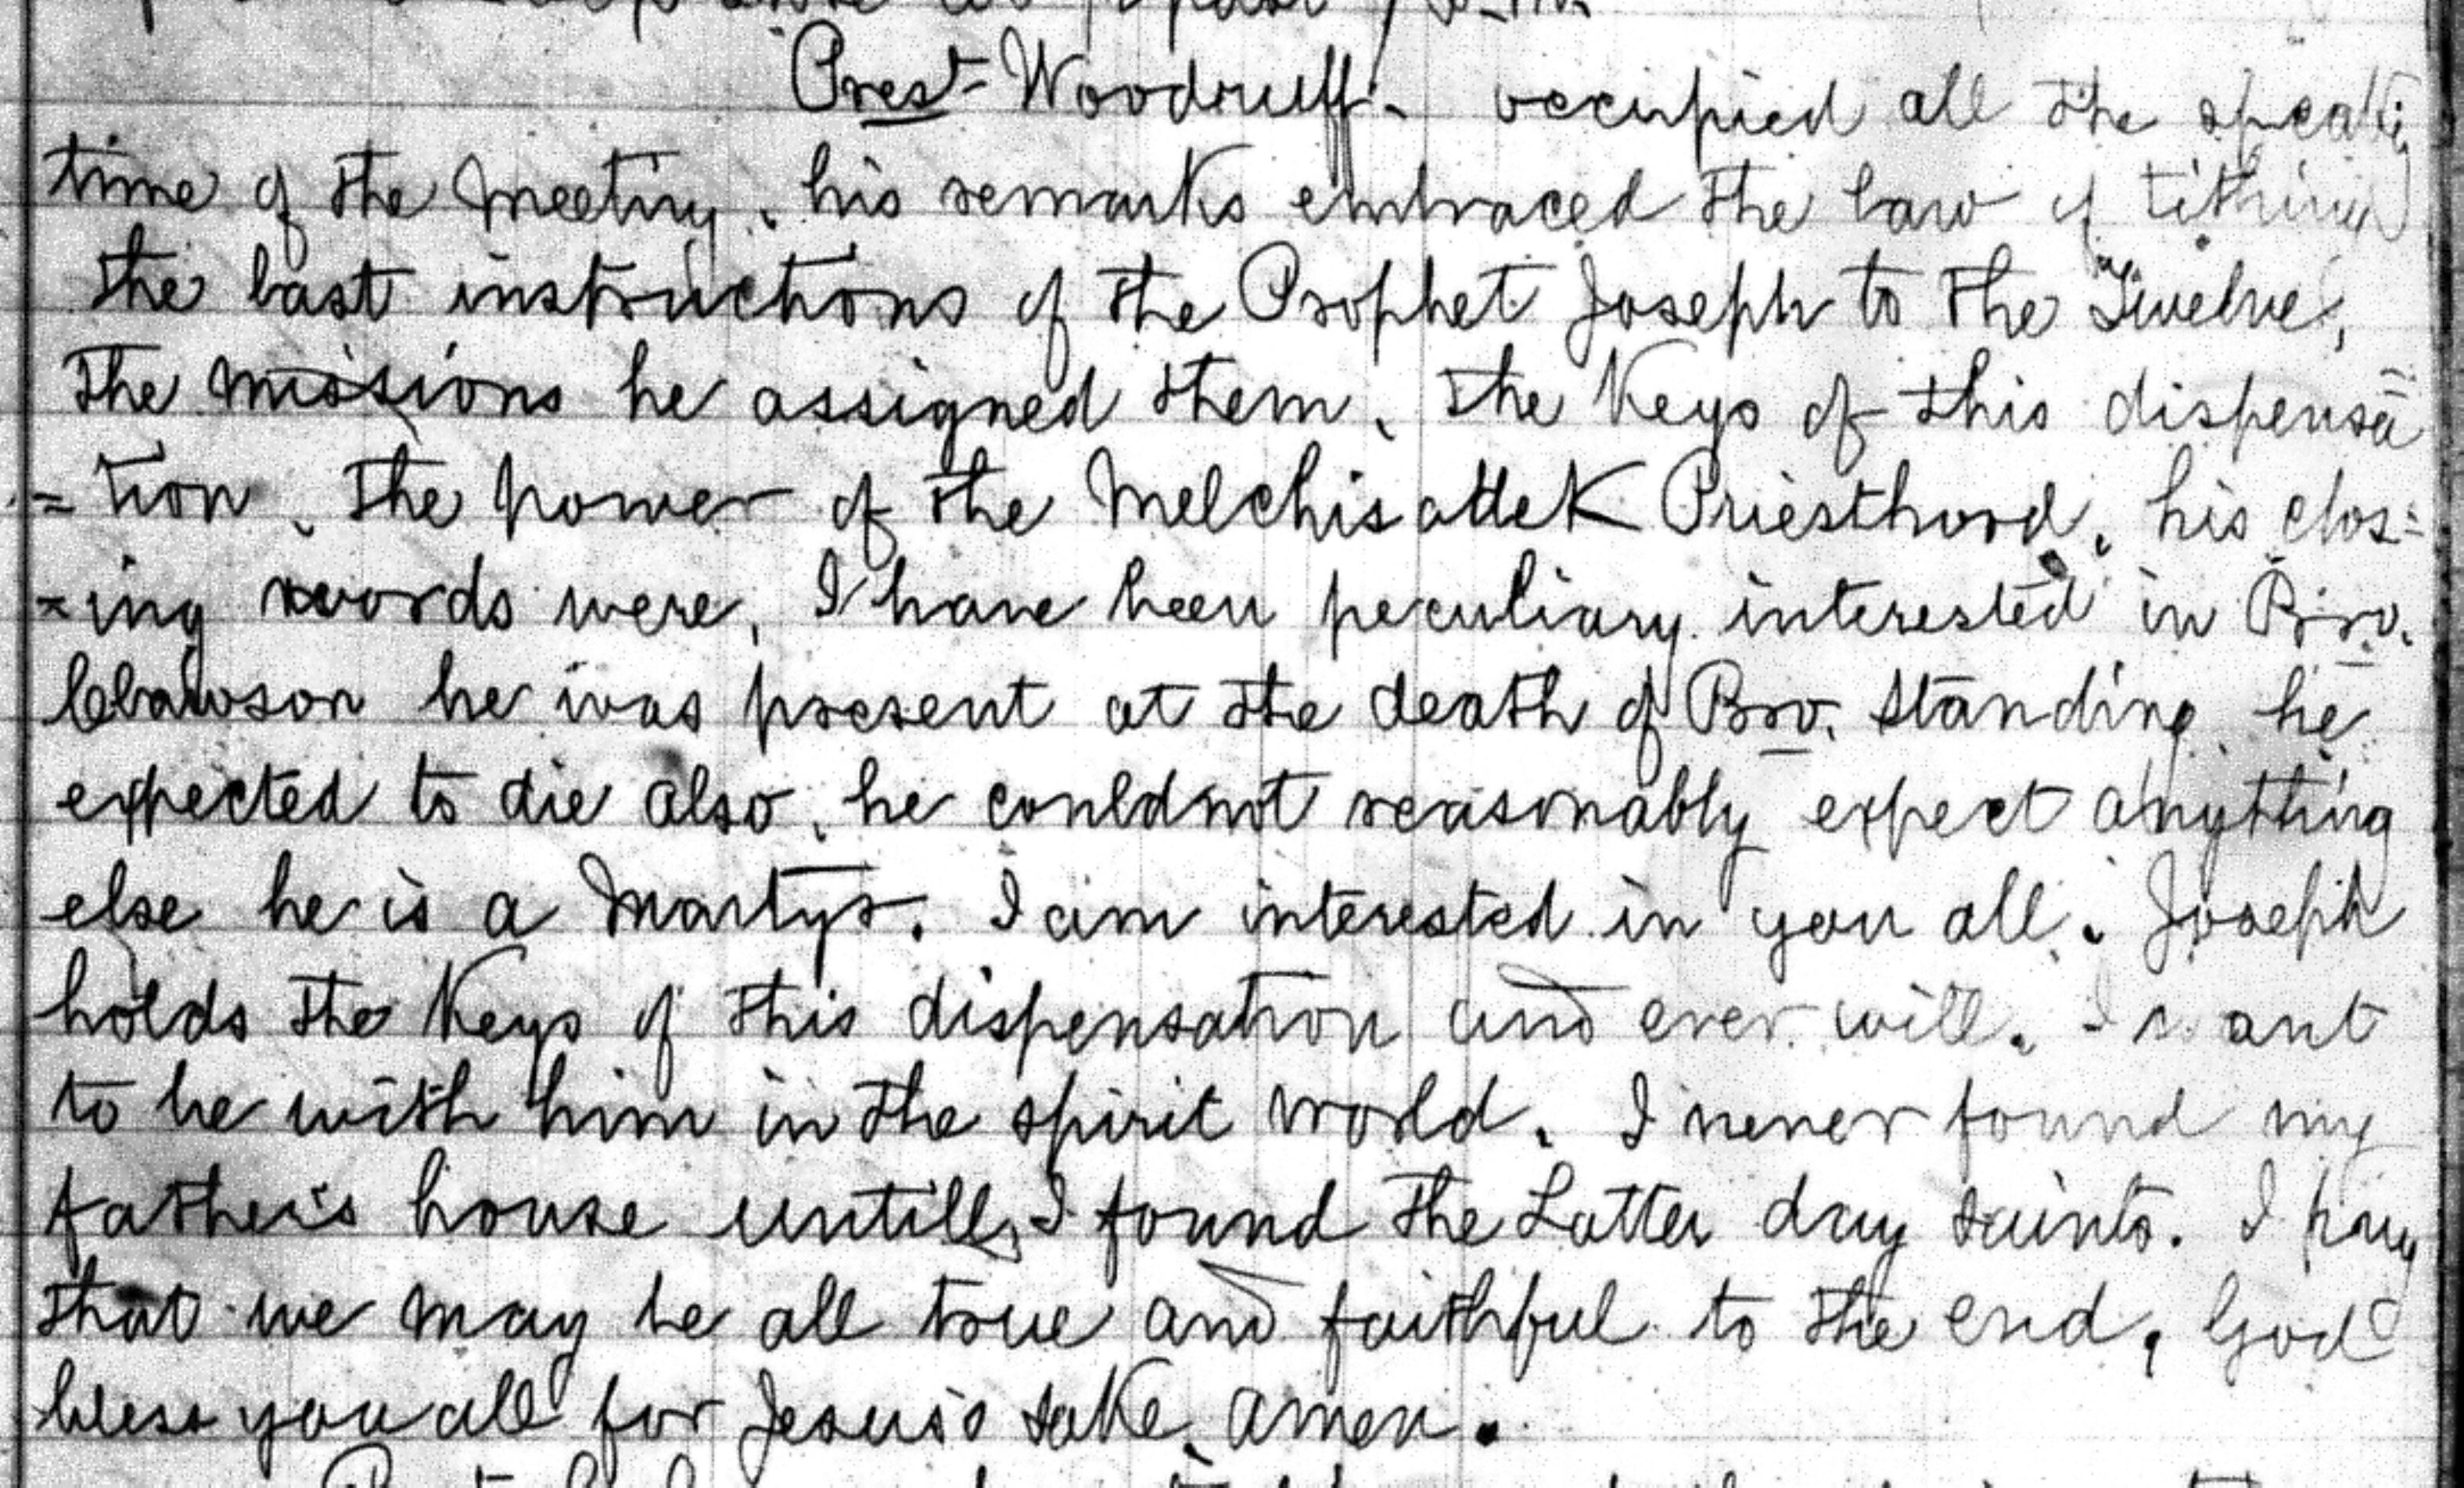 Prest- Woodruff- occupied all the
time of the meeting, his remarks embraced the law of tithing
the last instructions of the Prophet Joseph to the Twelve,
the missions he assigned them, the Keys of this dispensa
=tion, the power of the Melchisadek Priesthood, his clos=
=ing words were, I have been peculiary interested in Bro.
Clawson he was present at the death of Bro. Standing, he
expected to die also, he couldnot reasonably expect anything
else he is a martyr. I am interested in you all. Joseph
holds the Keys of this dispensation and ever will. I want
to be with him in the spirit world. I never found my
father's house untill I found the Latter day saints. I pray
that we may be all true and faithful to the end, God
bless you all for Jesus's sake, amen.